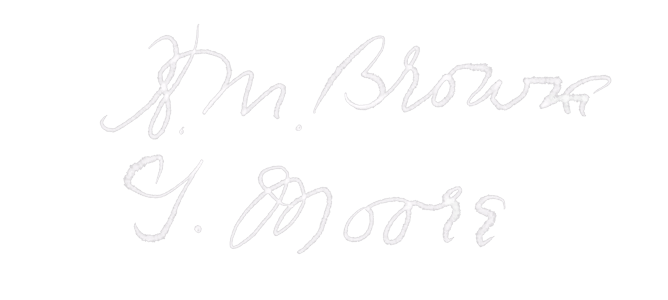 H. M. Brown
G. Moore